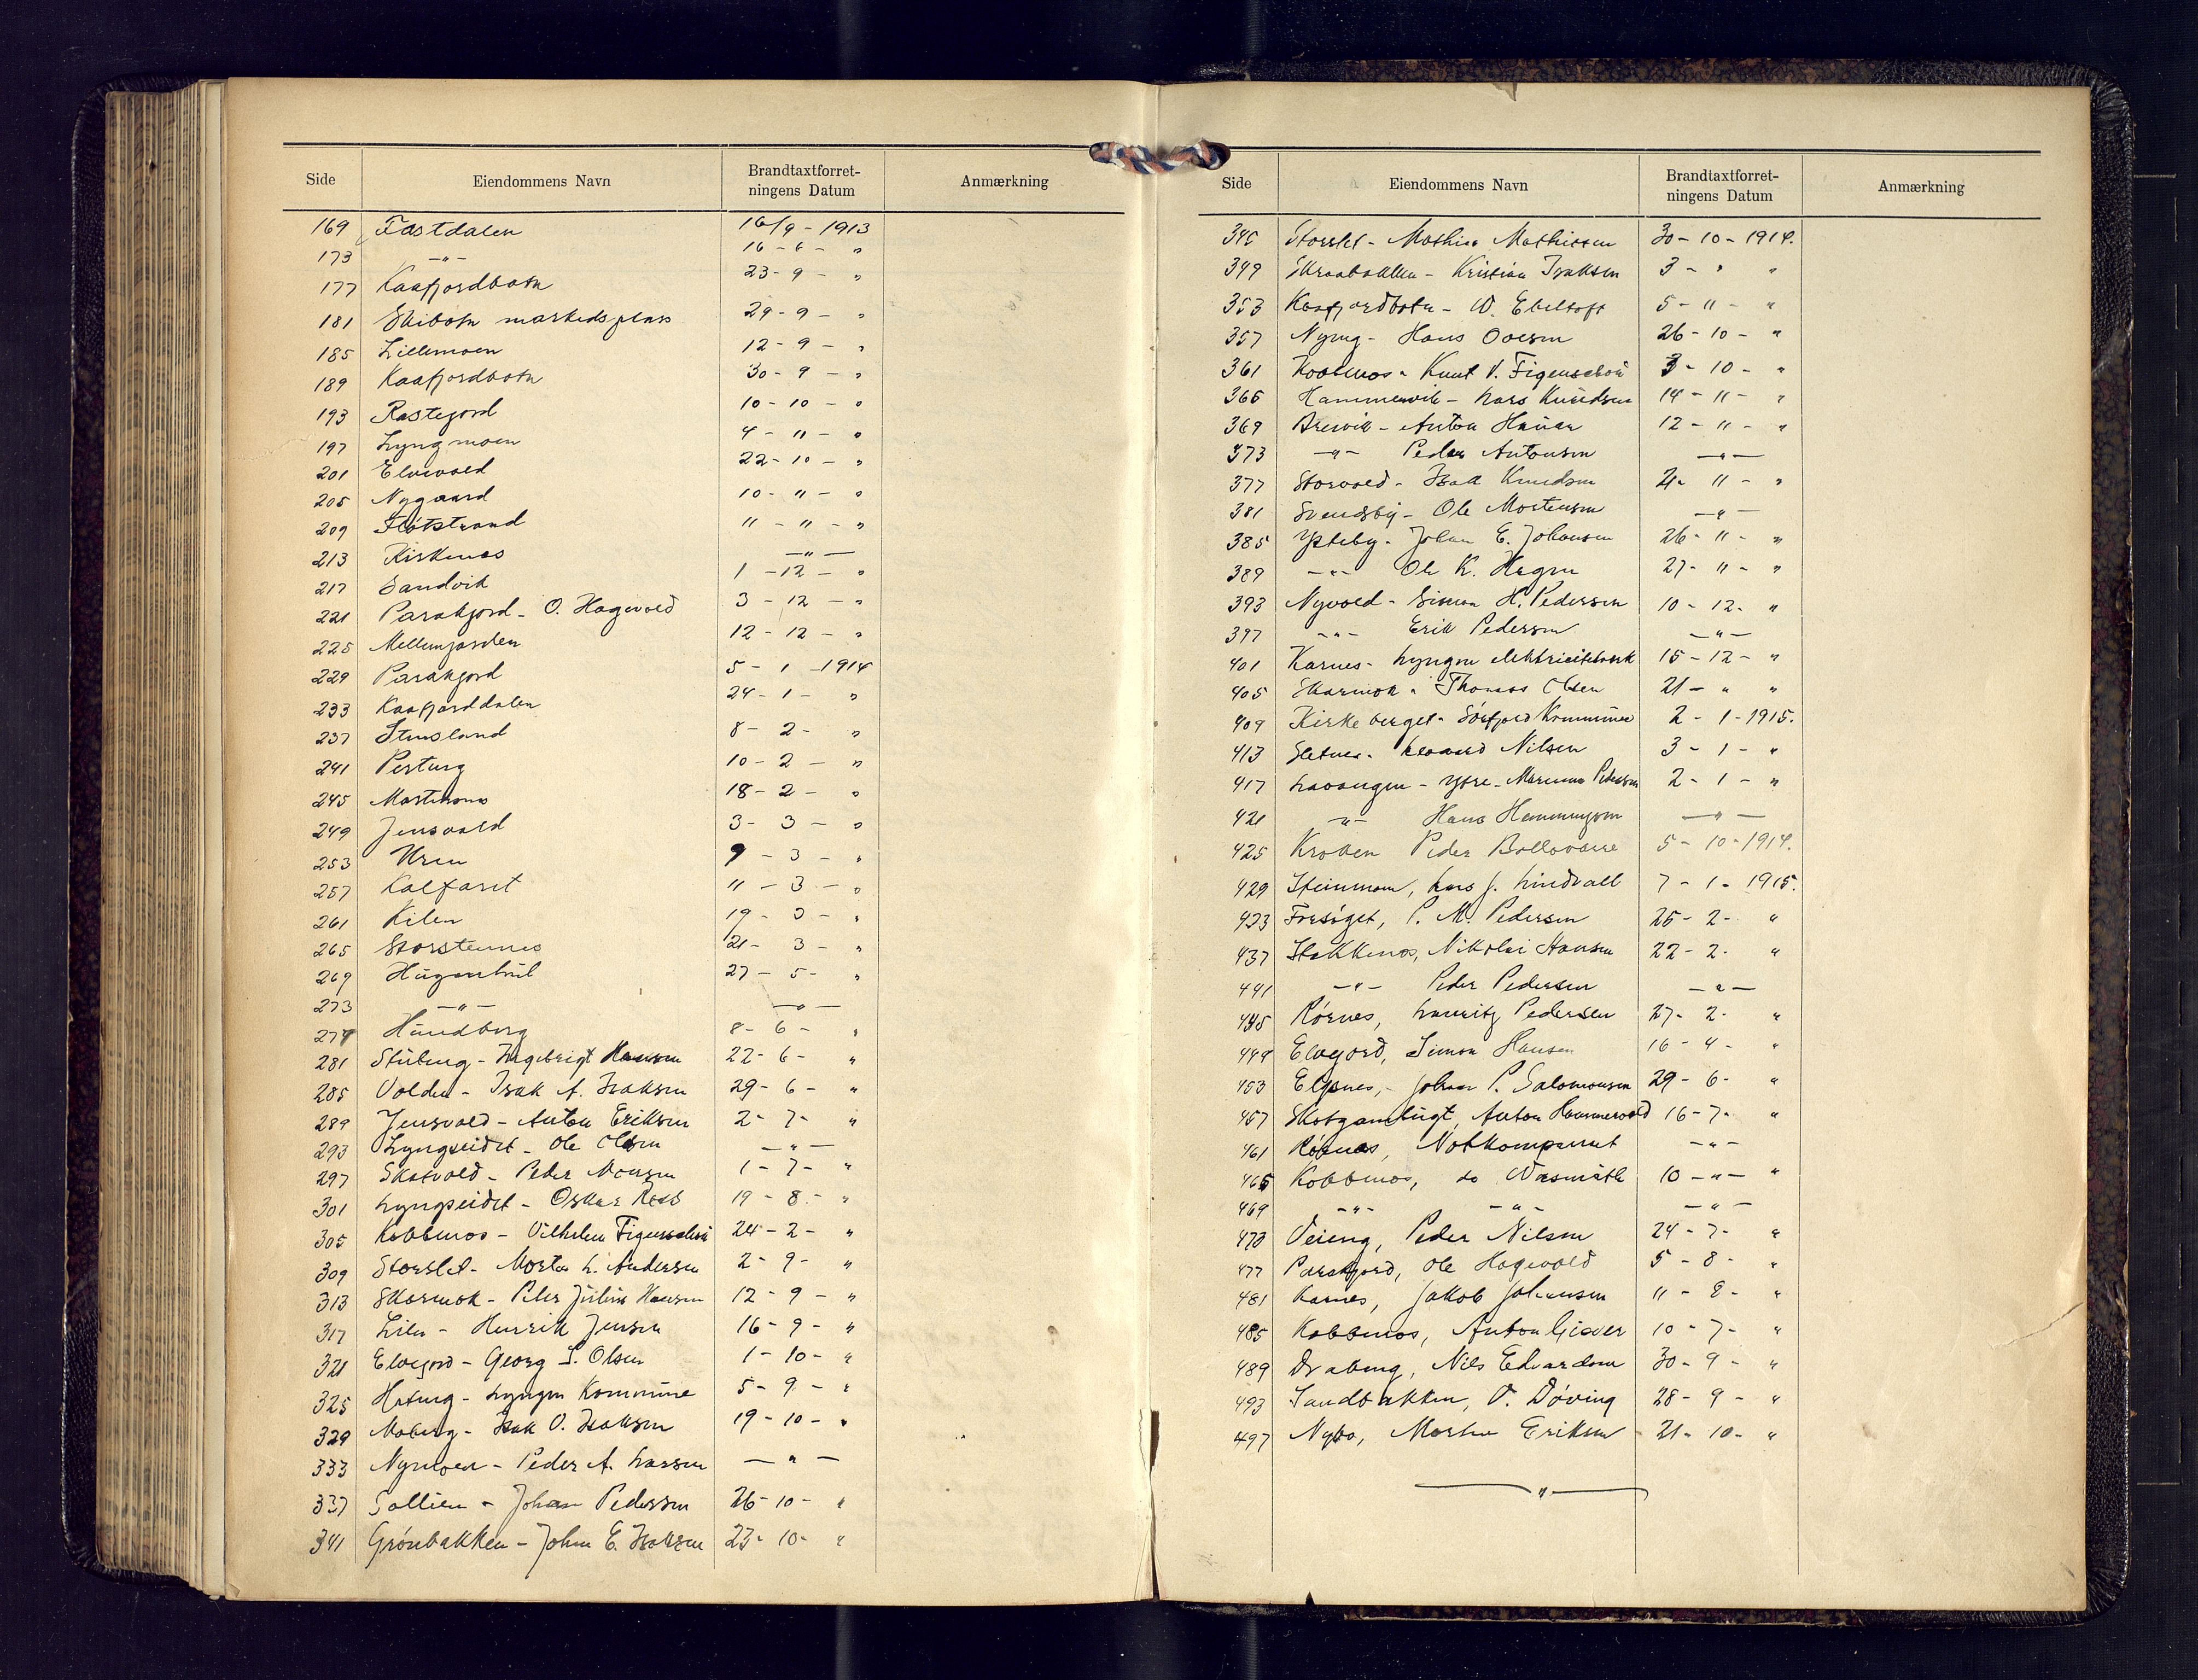 Side Eiendommens Navn Brandtaxtforret-ningens Datum Anmærkning
169 Fastdalen 16/9 - 1913
173 -"- 16 - 6 - "
177 Kaafjordbotn 23 - 9 - "
181 Skibotn markedsplass 29 - 9 - "
185 Lillemoen 12 - 9 - "
189 Kaafjordbotn 30 - 9 - "
193 Rastejord 10 - 10 - "
197 Lyngmoen 4 - 11 - "
201 Elvevold 22 - 10 - "
205 Nygaard 10 - 11 - "
209 Flötstrand 11 - 11 - "
213 Kirkenes -"-
217 Sandvik 1 - 12 - "
221 Parakjord - O. Hagevold 3 - 12 - "
225 Mellemjorden 12 - 12 - "
229 Parakjord 5 - 1 - 1914
233 Kaafjorddalen 24 - 1 - "
237 Stensland 8 - 2 - "
241 8 10 - 2 - "
245 18 - 2 - "
249 Jensvold 3 - 3 - "
253 Uren 9 - 3 - "
257 Kalfaret 11 - 3 - "
261 Kilen 19 - 3 - "
265 Storstennes 21 - 3 - "
269 27 - 5 - "
273 -"- -"-
277 Hundberg 8 - 6 - "
281 Stubeng - Ingebrigt Hansen 22 - 6 - "
285 Volden - Isak A. Isaksen 29 - 6 - "
289 Jensvold - Anton Eriksen 2 - 7 - "
293 Lyngseidet - Ole Olsen -"-
297 Skatvold - Peder Monsen 1 - 7 - "
301 Lyngseidet - Oskar 19 - 8 - "
305 Kobbenes - Vilhelm Figenschou 24 - 2 - "
309 Storslet - Morten L. Andersen 2 - 9 - "
313 Skarmok - Peter Julius Hansen 12 - 9 - "
317 Lilen - Henrik Jensen 16 - 9 - "
321 Elvejord - Georg S. Olsen 1 - 10 - "
325 Lyngen Kommune 5 - 9 - "
329 Moberg - Isak O. Isaksen 19 - 10 - "
333 Nymoen - Peder A. Larsen - " -
337 Sollien - Johan Pedersen 26 - 10 - "
341 Grönbakken - Johan E. Isaksen 23 - 10 - "
Side Eiendommens Navn Brandtaxtforret-ningens Datum Anmærkning
345 Storslet - Mathias Mathissen 30 - 10 - 1914.
349 Skraabakken - Kristian Isaksen 3 - " "
353 Kaafjordbotn - W. Ebeltoft 5 - 11 - "
357 Nyeng - Hans Olsen 26 - 10 - "
361 Kobbenes - Knut V. Figenschou 3 - 10 - "
365 Hammervik - Lars Knudsen 14 - 11 - "
369 Areivik - Anton Hansen 12 - 11 - "
373 -"- Peder Antonsen -"-
377 Storvold - Isak Knudsen 2 - 11 - "
381 Svendsby - Ole Mortensen -"-
385 Ysteby - Johan E. Johansen 26 - 11 - "
389 -"- Ole K. Hegen 27 - 11 - "
393 Nyvold - Simon H. Pedersen 10 - 12 - "
397 -"- Erik Pedersen -"-
401 Karnes - Lyngen elektricitetsverk 15 - 12 - "
405 Skarmok - Thomas Olsen 21 - " "
409 Kirkeberget - Sörfjord Kommune 2 - 1 - 1915.
413 Sletnes - Leonard Nilsen 3 - 1 - "
417 Lavangen - ytre - Marenna Pedersen 2 - 1 - "
421 -"- Hans Hemmingsen -"-
425 Kroken Peder Bollovarre 5 - 10 - 1914.
429 Steinmoen, Lars J. Lindvall 7 - 1 - 1915.
433 Forsöget, P. M. Pedersen 25 - 2 - "
437 Stakkenes, Nikolai Hansen 22 - 2 - "
441 -"- Peder Pedersen -"-
445 Rörnes, Lauritz Pedersen 27 - 2 - "
449 Elvejord, Simon Hansen 16 - 4 - "
453 Elgsnes, Johan P. Salomonsen 29 - 6 - "
457 Anton Hammervold 16 - 7 - "
461 Rörnes, Notkompaniet -"-
465 Kobbenes, do Vasmuth 10 -"- "
469 -"- -"- -"-
473 Veieng, Peder Nilsen 24 - 7 - "
477 Parakjord, Ole Hagevold 5 - 8 - "
481 Karnes, Jakob Johansen 11 - 8 - "
485 Kobbenes, Anton Giæver 10 - 7 - "
489 Drabeng, Nils Edvardsen 30 - 9 - "
493 Sandbakken, O. Döving 28 - 9 - "
497 Nybo, Morten Eriksen 21 - 10 - "
-"-